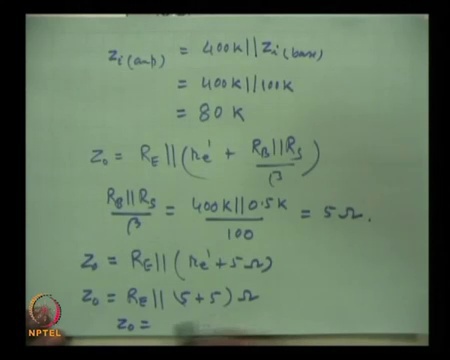 Zi(amp) = 400K || Zi(base)
= 400K || 100K
= 80 K
Zo = RE || (re' + RB||RS / β)
RB||RS / β = 400K || 0.5K / 100 = 5 Ω.
Zo = RE || (re' + 5Ω)
Zo = RE || (5 + 5) Ω
Zo =
NPTEL